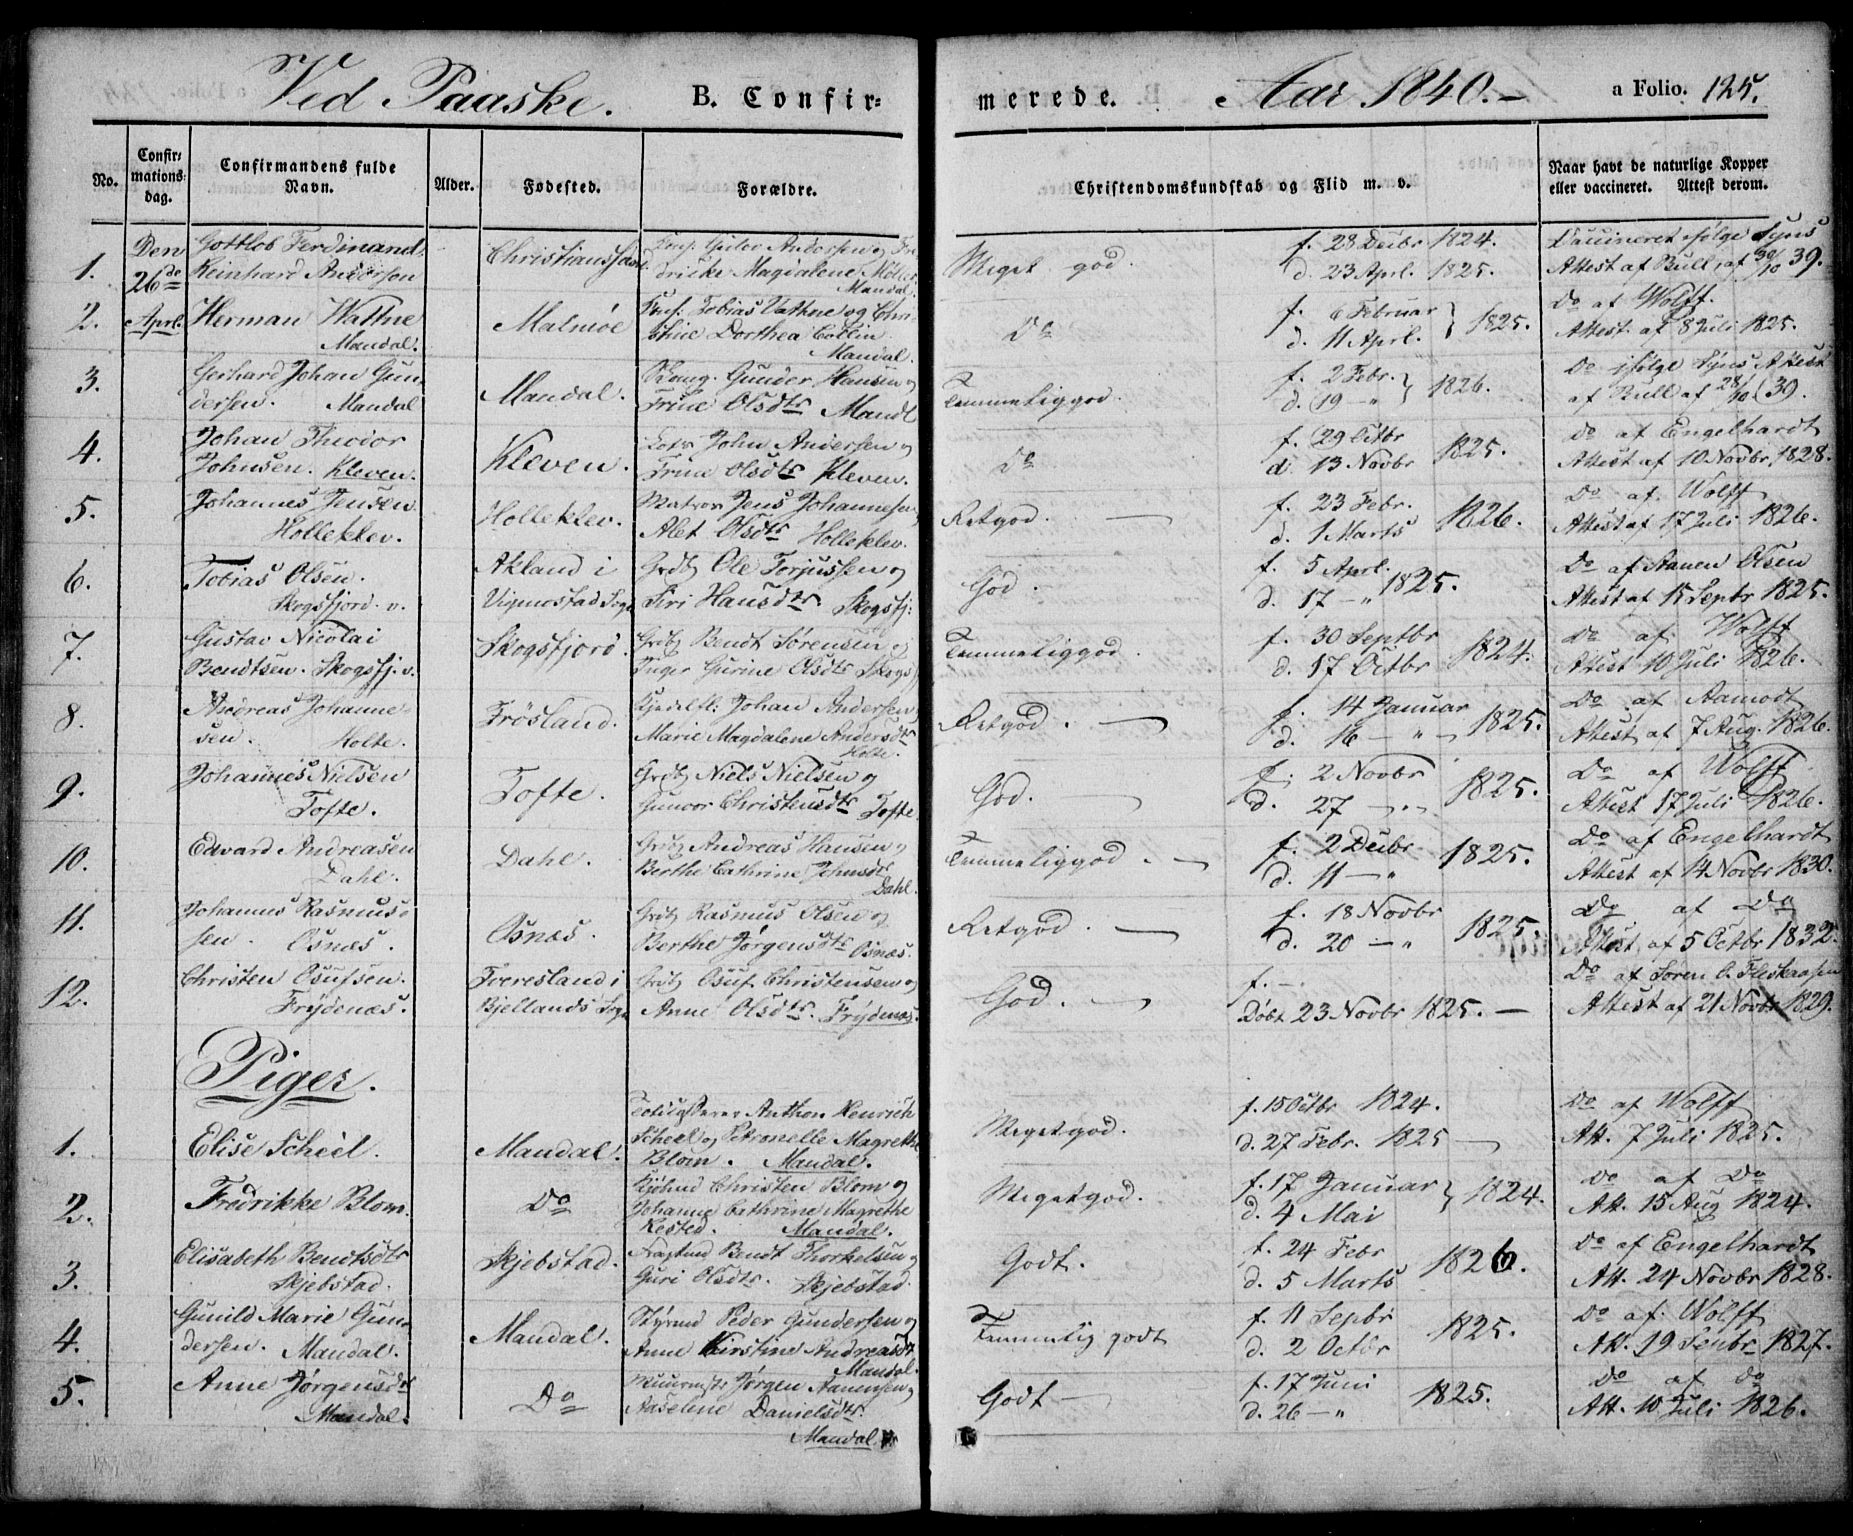 Ved Paaske. B. Confir= merede. Aar 1840.- a Folio. 125.
No. Confir= mations= dag. Confirmandens fulde Navn. Alder. Fødested. Forældre. Christendomskundskab og Flid m. v. Naar havt de naturlige Kopper eller vaccineret. Attest derom.
1. Den 26de Aprl. Gottlob Ferdinand Reinhard Andersen Christianssand. Andersen og Fre dricke Magdalene Møller Mandal. Meget god. f. 28 Decbr 1824. d. 23 Aprl. 1825. Vaccineret ifølge Syns Attest af Bull, af 30/10 39.
2. Herman Wattne Mandal. Malmöe Tobias Vathne og Chri- stine Dorthea Collin Mandal. Do f. 6 Februar d. 11 Aprl. 1825. Do af Wolff. Attest af 8 Juli 1825.
3. Gerhard Johan Gun- dersen. Mandal Mandal. Gunder Hansen og Trine Olsdtr Mandl Temmeliggod. f. 2 Febr. d. 19 - " 1826. Do ifølge Syns Attest af Bull af 28/10 39.
4. Johan Theodor Johnsen. Kleven. Kleven. John Andersen og Trine Olsdtr Kleven. Do f. 29 Octbr d. 13 Novbr 1825. Do af Engelhardt Attest af 10 Novbr 1828.
5. Johannes Jensen Holleklev. Holleklev. Matros Jens Johannesen Alet Olsdtr Holleklev. Retgod. - f. 23 Febr. d. 1 Marts 1826. Do af Wolff Attest af 17 Juli 1826.
6. Tobias Olsen. Skogsfjord. v. Akland i Vigmostad Sogn Grdb Ole Torjussen og Siri Hansdtr Skogsfj: God. f. 5 Aprl. d. 17 - " 1825. Do af Aanen Olsen Attest af 15 Septbr 1825.
7. Gustav Nicolai Bendtsen. Skogsfj. v. Skogsfjord. Grdb Bendt Sørensen og Inger Gurine Olsdtr Skogsf Temmeliggod. f. 30 Septbr d. 17 Octbr 1824. Do af Wolff Attest 10 Juli 1826.
8. Andreas Johanne- sen. Holte. Frösland. Johan Andersen Marie Magdalene Andersdtr Holte Retgod. - f. 14 Januar d. 16 - " - 1825. Do af Aamodt Attest af 7 Aug. 1826.
9. Johannes Nielsen Tofte. Tofte. Grdb Niels Nielsen og Gunvor Christensdtr Tofte. God. - f. 2 Novbr d. 27 - " 1825. Do af Wolff Attest 17 Juli 1826.
10. Edvard Andreasen Dahl. Dahl. Grdb Andreas Hansen og Berthe Cathrine Johnsdtr Dahl. Temmeliggod. - f. 2 Decbr. d. 11 - " 1825. Do af Engelhardt Attest af 14 Novbr 1830.
11. Johannes Rasmus- sen. Osnæs. Osnæs. Grdb Rasmus Olsen og Berthe Jørgensdtr Osnæs. Retgod. - f. 18 Novbr d. 20 - " 1825 Do af Do Attest af 5 Octbr 1832.
12. Christen Osufsen. Frydenæs. Foeresland i Bjellands Sogn Grdb Osuf Christensen og Anne Olsdtr. Frydenæs. God. - f. - Døbt 23 Novbr 1825. - Do af Søren O. Fleskaasen Attest af 21 Novbr 1829.
Piger.
1. Elise Scheel. Mandal. Anthon Henrich Scheel og Petronelle Magrethe Blom. Mandal. Megetgod. f. 15 Octbr 1824. d. 27 Febr. 1825 - Do af Wolff Att. 7 Juli 1825.
2. Fredrikke Blom. Do Christen Blom og Johanne Cathrine Magrethe Mandal. Megetgod. f. 17 Januar d. 4 Mai 1824. Do af Do Att. 15 Aug 1824.
3. Elisabeth Bendtsdtr Skjebstad. Skjebstad. Bendt Thorkelsen og Guri Olsdtr. Skjebstad. Godt. f. 24 Febr d. 5 Marts 1826. Do af Engelhardt Att. 24 Novbr 1828.
4. Gunild Marie Gun- dersen. Mandal. Mandal. Styrmd Peder Gundersen og Anne Kirstine Andreasdt. Mandal. Temmelig godt f. 11 Sepbr d. 2 Octbr 1825. Do af Wolff Att. 19 Senbr 1827.
5. Anne Jørgensdtr Mandal. Do Jørgen Aanensen og Aaselene Danielsdtr. Mandal. Godt - f. 17 Juni d. 26 - " 1825. Do af do Att. 10 Juli 1826.